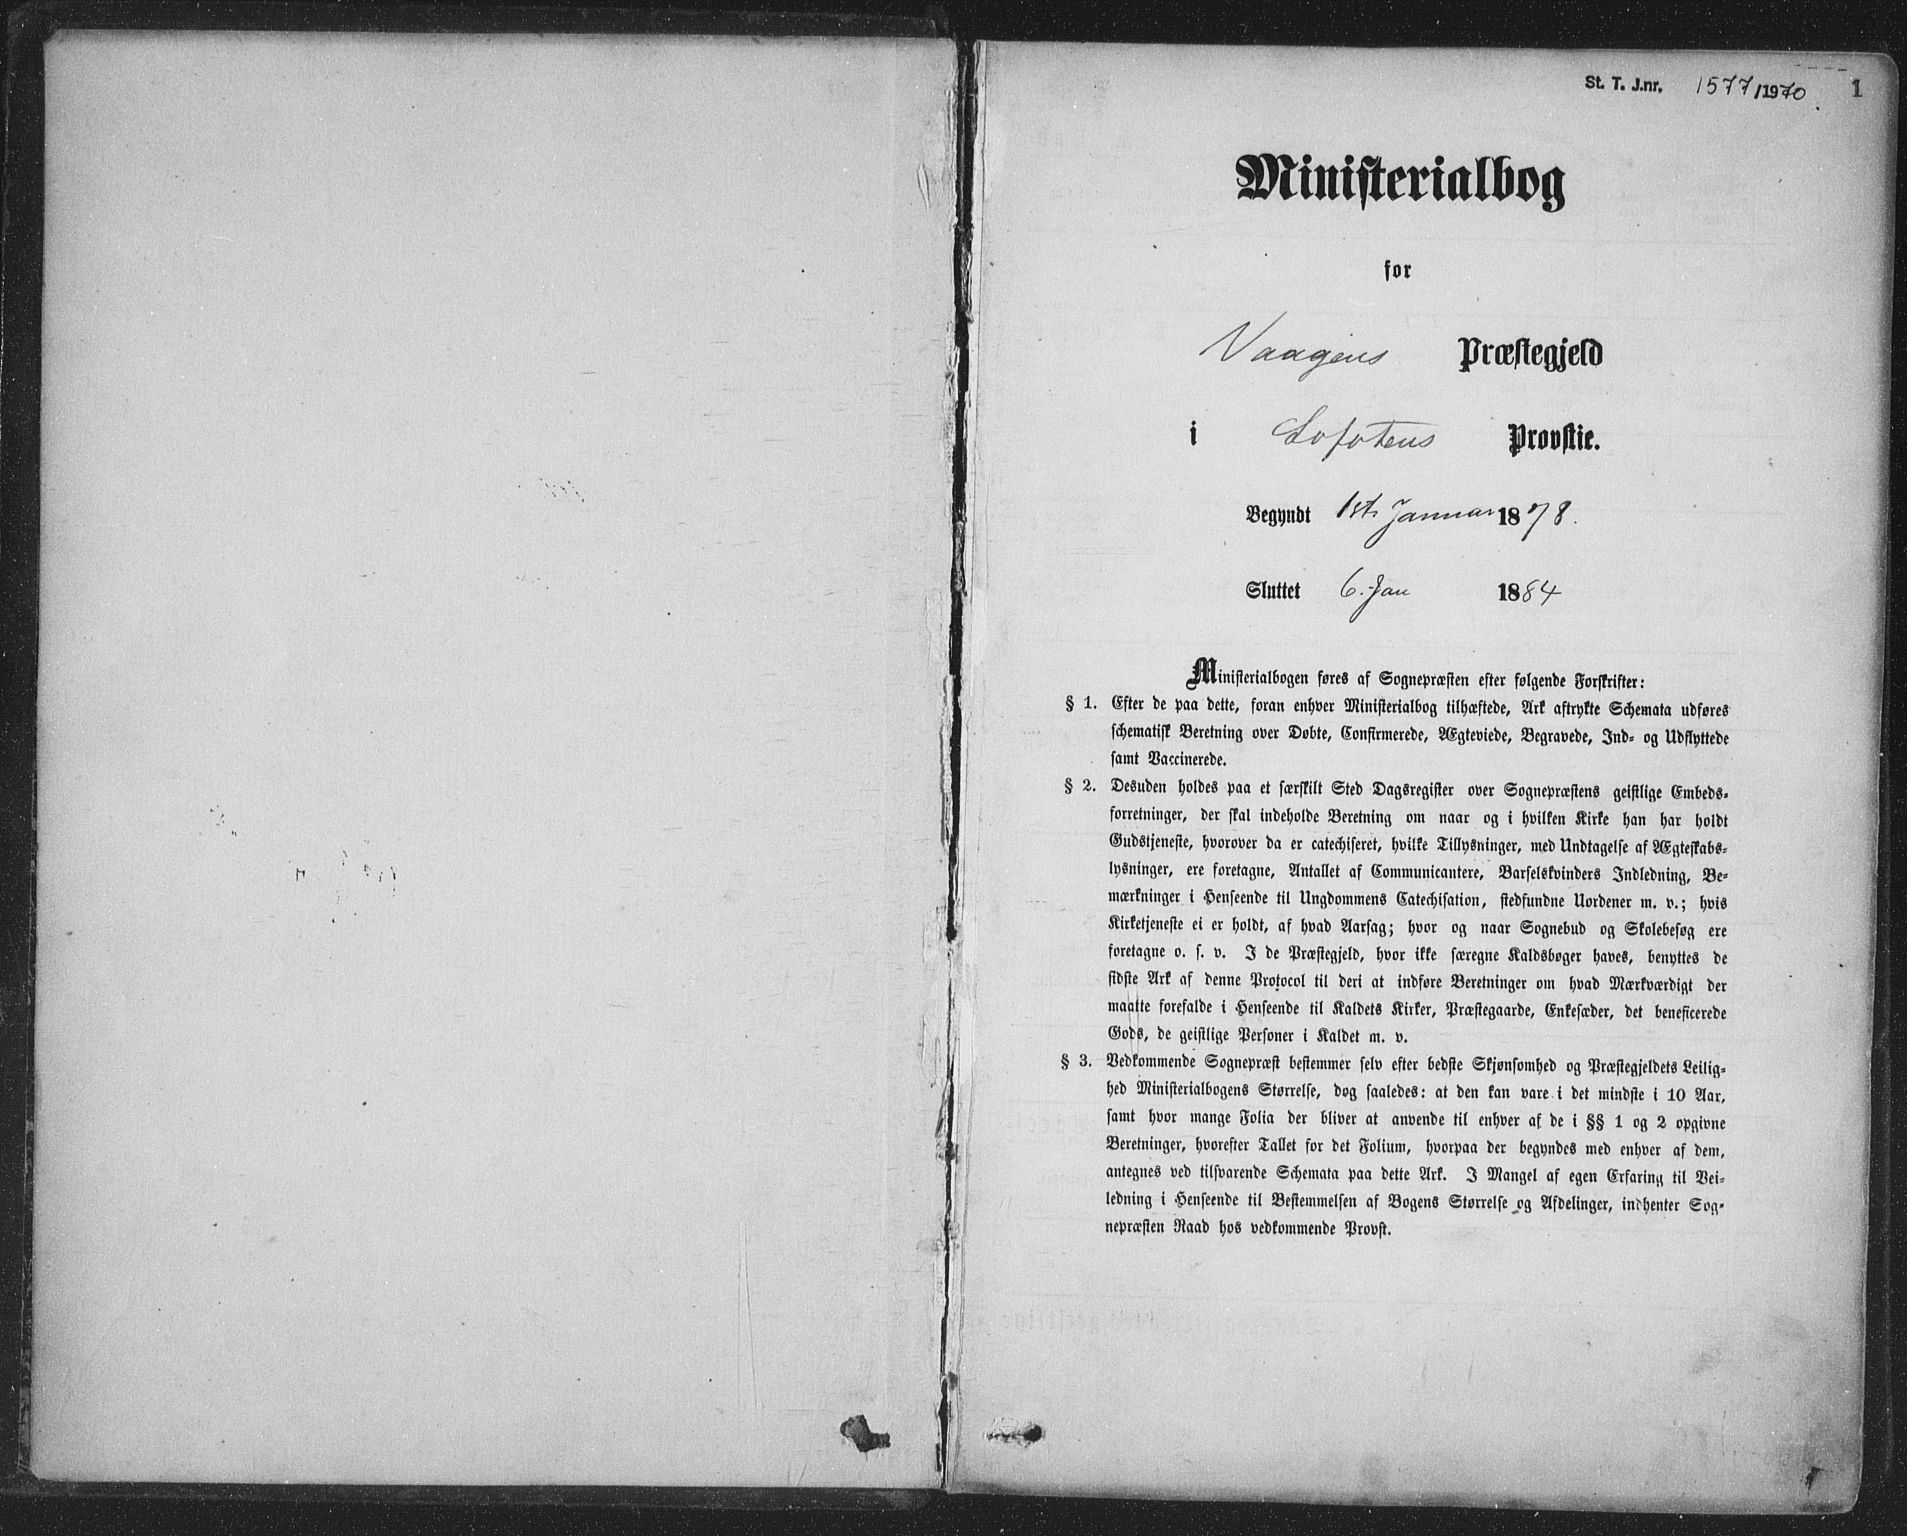 St. T. J.nr. 1577/1970 1
Ministerialbog
for
Vaagens Præstegjeld
i Lofotens Provstie.
Begyndt 1st. Januar 1878.
Sluttet 6. Jan 1884
Ministerialbogen føres af Sognepræsten efter følgende Forskrifter:
§ 1. Efter de paa dette, foran enhver Ministerialbog tilhæftede, Ark aftrykte Schemata udføres
schematisk Beretning over Døbte, Confirmerede, Ægteviede, Begravede, Ind- og Udflyttede
samt Vaccinerede.
§ 2. Desuden holdes paa et særskilt Sted Dagsregister over Sognepræstens geistlige Embeds-
forretninger, der skal indeholde Beretning om naar og i hvilken Kirke han har holdt
Gudstjeneste, hvorover da er catechiseret, hvilke Tillysninger, med Undtagelse af Ægteskabs-
lysninger, ere foretagne, Antallet af Communicantere, Barselskvinders Indledning, Be-
mærkninger i Henseende til Ungdommens Catechisation, stedfundne Uordener m. v.; hvis
Kirketjeneste ei er holdt, af hvad Aarsag; hvor og naar Sognebud og Skolebesøg ere
foretagne o. s. v. I de Præstegjeld, hvor ikke særegne Kaldsbøger haves, benyttes de
sidste Ark af denne Protocol til deri at indføre Beretninger om hvad Mærkværdigt der
maatte forefalde i Henseende til Kaldets Kirker, Præstegaarde, Enkesæder, det beneficerede
Gods, de geistlige Personer i Kaldet m. v.
§ 3. Vedkommende Sognepræst bestemmer selv efter bedste Skjønsomhed og Præstegjeldets Leilig-
hed Ministerialbogens Størrelse, dog saaledes: at den kan vare i det mindste i 10 Aar,
samt hvor mange Folia der bliver at anvende til enhver af de i §§ 1 og 2 opgivne
Beretninger, hvorefter Tallet for det Folium, hvorpaa der begyndes med enhver af dem,
antegnes ved tilsvarende Schemata paa dette Ark. I Mangel af egen Erfaring til Vei-
ledning i Henseende til Bestemmelsen af Bogens Størrelse og Afdelinger, indhenter Sog-
nepræsten Raad hos vedkommende Provst.